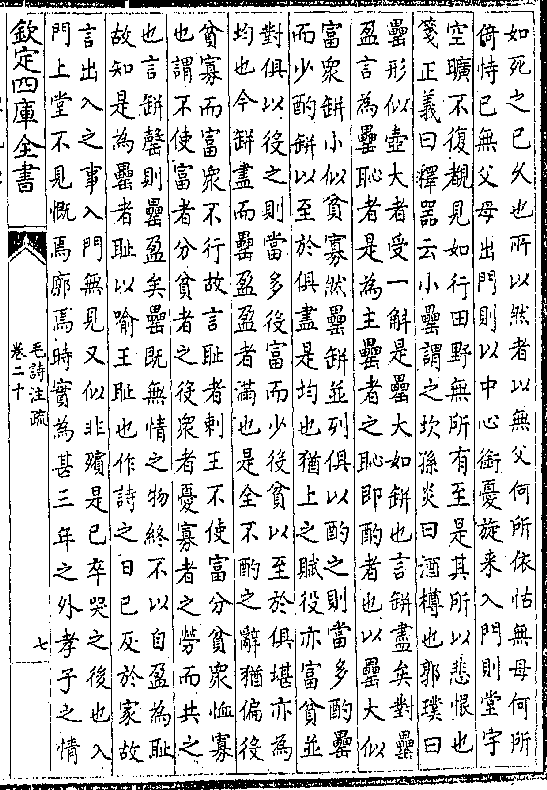 如死之已久也所以然者以無父何所依怙無母何所
倚恃已無父母出門則以中心銜憂旋来入門則堂宇
空曠不復覩見如行田野無所有至是其所以悲恨也
箋正義曰釋噐云小罍謂之坎孫炎曰酒樽也郭璞曰
罍形似壺大者受一斛是罍大如缾也言缾盡矣對罍
盈言為罍恥者是為主罍者之恥即酌者也以罍大似
富衆缾小似貧寡然罍缾並列俱以酌之則當多酌罍
而少酌缾以至於俱盡是均也猶上之賦役亦富貧並
對俱以役之則當多役富而少役貧以至於俱堪亦為
均也今缾盡而罍盈盈者滿也是全不酌之辭猶偏役
貧寡而富衆不行故言恥者刺王不使富分貧衆恤寡
也謂不使富者分貧者之役衆者憂寡者之勞而共之
也言缾罄則罍盈矣罍既無情之物終不以自盈為恥
故知是為罍者恥以喻王恥也作詩之日已反於家故
言出入之事入門無見又似非殯是已卒哭之後也入
門上堂不見慨焉廓焉時實為甚三年之外孝子之情
欽定四庫全書
毛詩注疏
卷二十
七